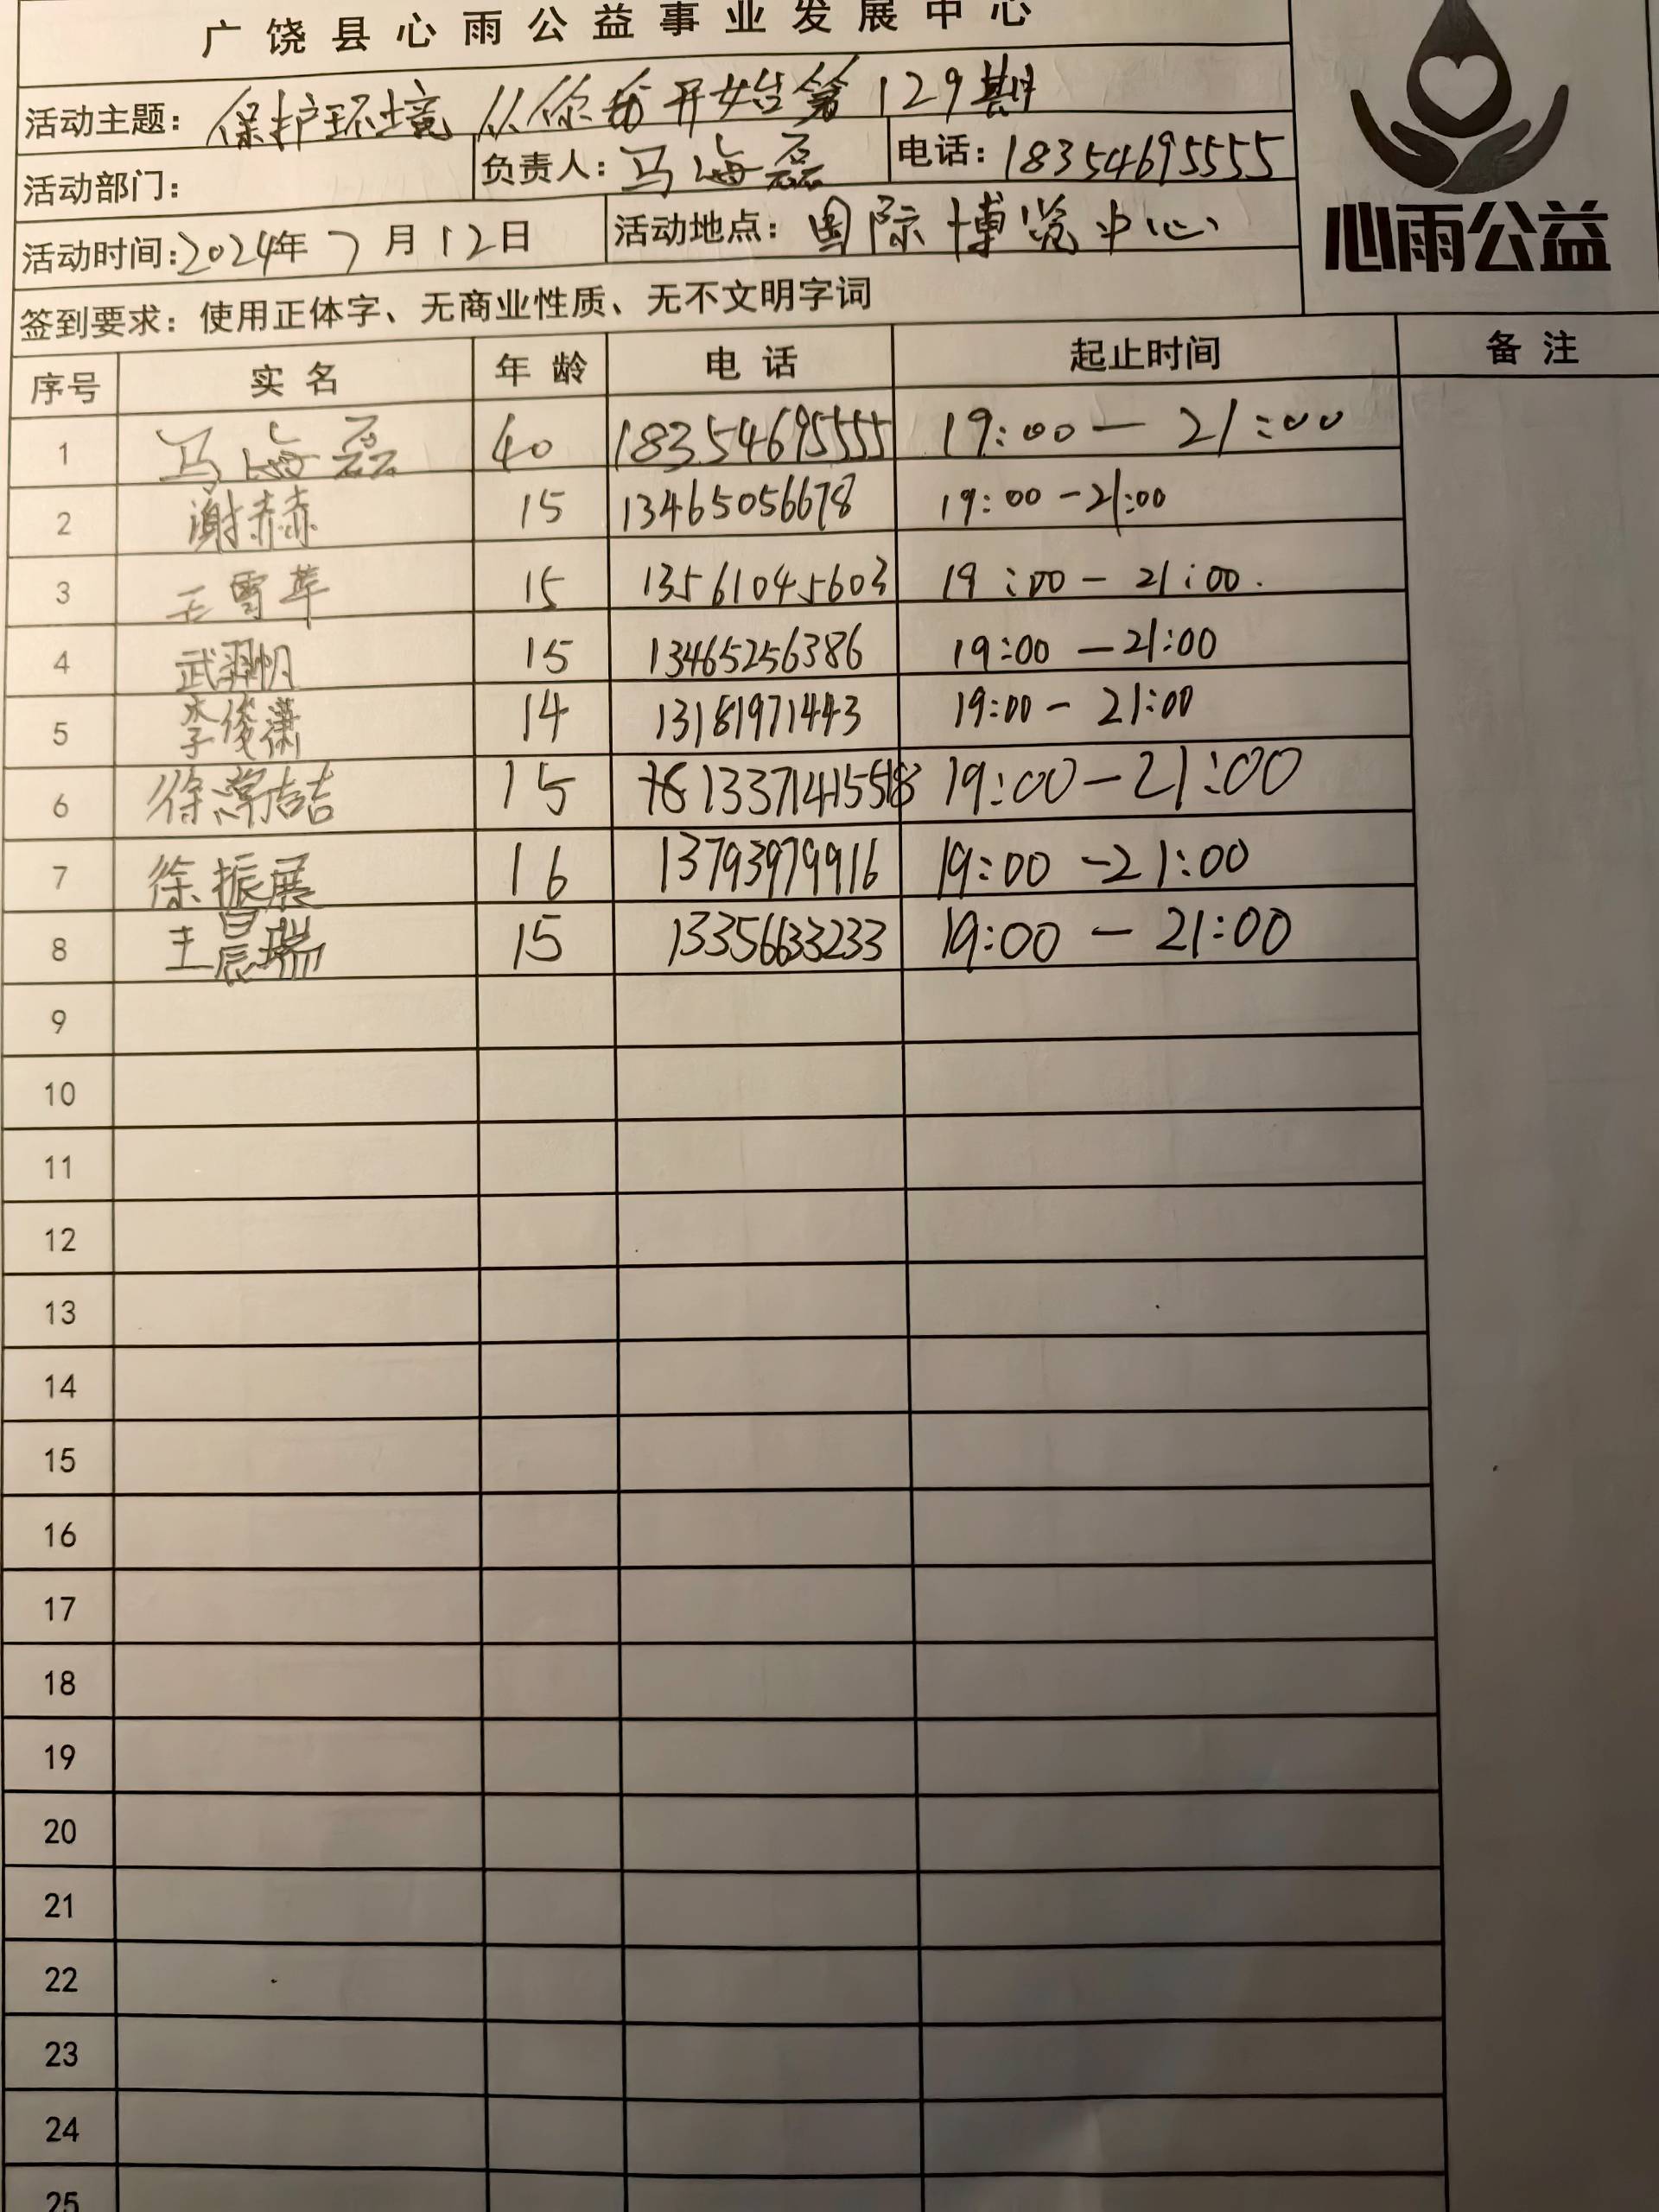 广饶县心雨公益事业发展中心
活动主题：保护环境 从你我开始第129期
活动部门：
负责人：马海磊
电话：18354695555
活动时间：2024年7月12日
活动地点：国际博览中心
心雨公益
签到要求：使用正体字、无商业性质、无不文明字词
序号 实名 年龄 电话 起止时间 备注
1 马海磊 40 18354695555 19:00—21:00
2 谢赫 15 13465056678 19:00-21:00
3 王雪苹 15 13561045603 19:00-21:00.
4 武羿帆 15 13465256386 19:00—21:00
5 李俊潇 14 13181971443 19:00-21:00
6 徐常喆 15 19:00-21:00
7 徐振展 16 13793979916 19:00-21:00
8 王晨瑞 15 13356633233 19:00-21:00
9
10
11
12
13
14
15
16
17
18
19
20
21
22
23
24
25